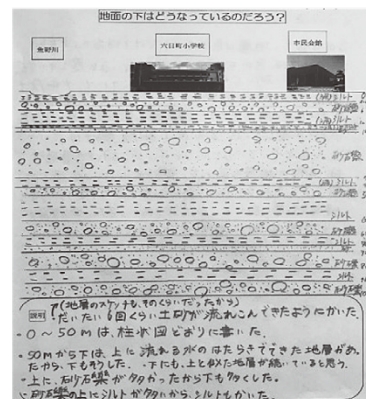 地面の下はどうなっているのだろう？
魚野川
六日町小学校
市民会館
シルト
砂礫
シルト
砂礫
シルト
砂礫
シルト
砂礫
シルト
砂礫
シルト
砂礫
説明
(地層のスケッチも、そのくらいだったから)
だいたい6回くらい土砂が流れこんできたようにかいた。
・0〜50mは、柱状図どおりに書いた。
・50mから下は、上に流れる水のはたらきでできた地層があっ
たから、下もそうした。下にも、上と似た地層が続いていると思う。
・上に、砂礫が多かったから下も多くした。
・砂礫の上にシルトが多いから、シルトもかいた。